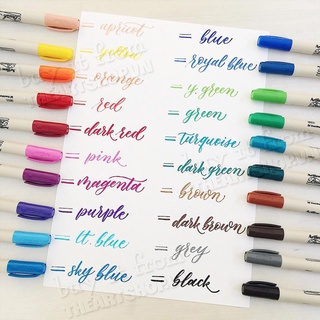 apricot
yellow
orange
red
dark red
pink
magenta
purple
lt. blue
sky blue
blue
royal blue
y. green
green
turquoise
dark green
brown
dark brown
grey
black